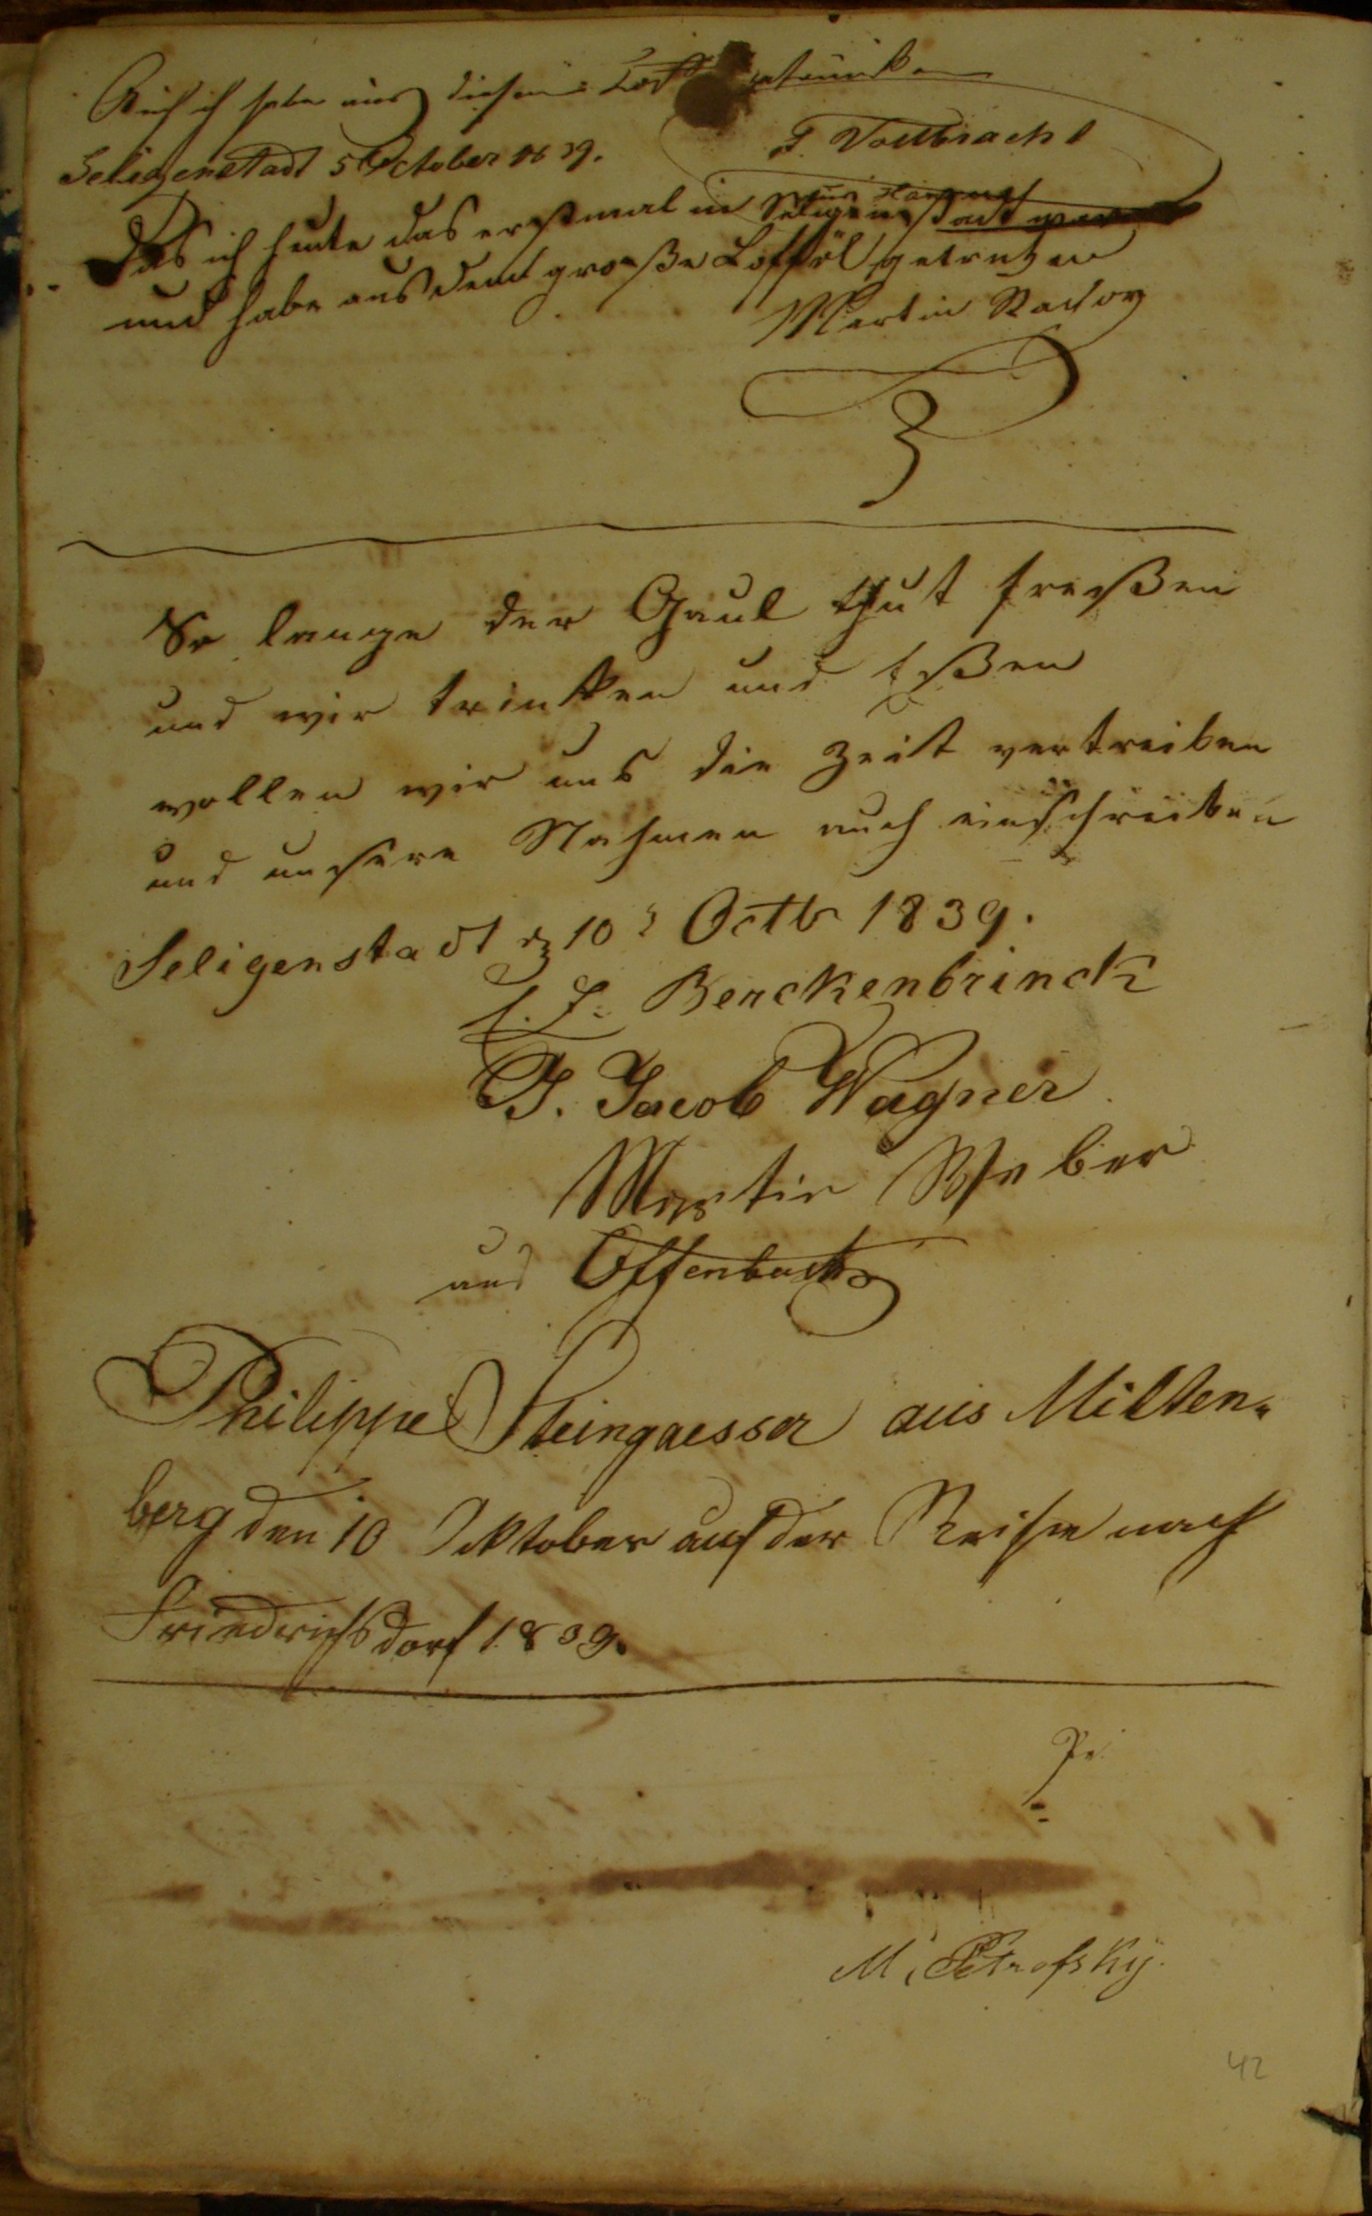 Auch ich habe aus diesem Löffel getrunken
F. Vollbracht
Seligenstadt 5 October 1839.
aus Hanau
Das ich heute das erstmal in Seligenstadt war
und habe aus dem große Löffel getrunken
Martin
So lange der Gaul thut freßen
und wir trinken und Eßen
wollen wir uns die Zeit vertreiben
und unsere Nahmen auch einschreiben
Seligenstadt d 10t Octb 1839.
Berckenbrinck
J. Jacob Wagner
Martin Weber
aus Offenbach
Philippe Steingaesser aus Milten„
berg den 10 Oktober auf der Reise nach
Friedrichsdorf 1839.
M. Petrofsky.
42